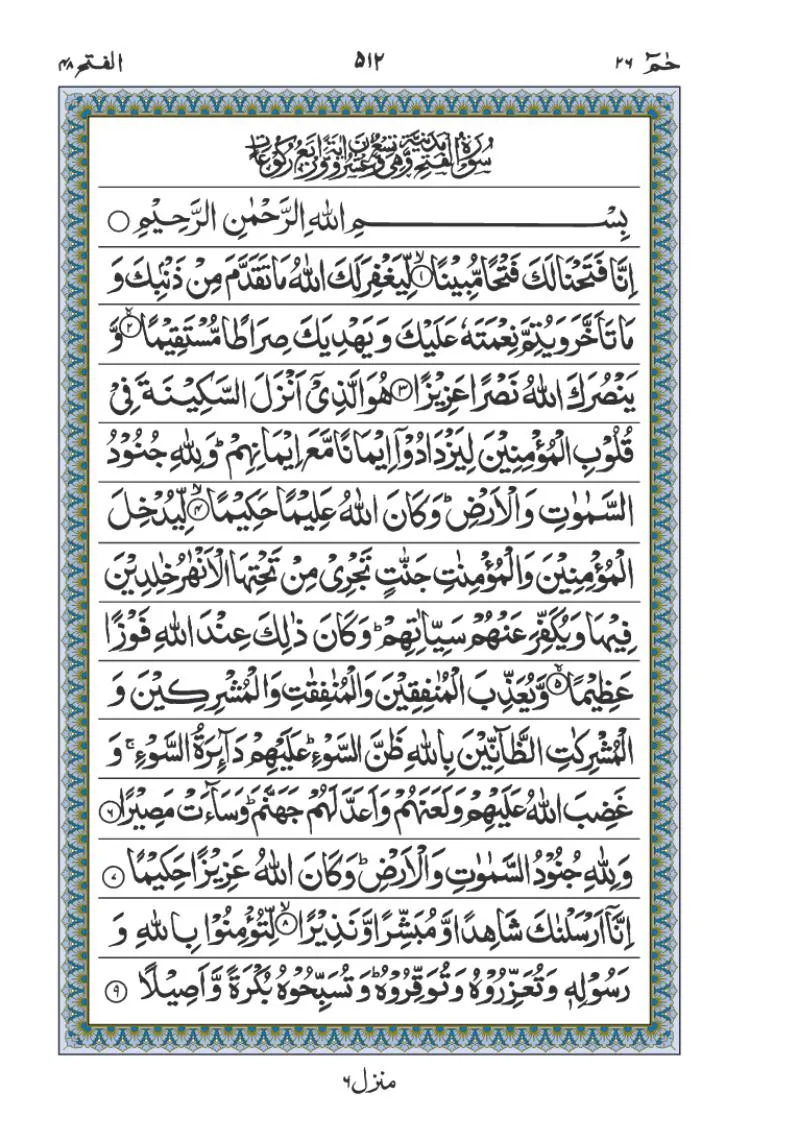 حٰمٓ ٢٦
٥١٢
الفتح ٤٨
سُوْرَةُ الْفَتْحِ مَدَنِيَّةٌ وَّهِيَ تِسْعٌ وَّعِشْرُوْنَ اٰيَةً وَّاَرْبَعُ رُكُوْعَاتٍ
بِسْمِ اللّٰهِ الرَّحْمٰنِ الرَّحِيْمِ ۝
اِنَّا فَتَحْنَا لَكَ فَتْحًا مُّبِيْنًا ۙ﴿١﴾ لِّيَغْفِرَ لَكَ اللّٰهُ مَا تَقَدَّمَ مِنْ ذَنْۢبِكَ وَ
مَا تَاَخَّرَ وَيُتِمَّ نِعْمَتَهٗ عَلَيْكَ وَيَهْدِيَكَ صِرَاطًا مُّسْتَقِيْمًا ۙ﴿٢﴾ وَّ
يَنْصُرَكَ اللّٰهُ نَصْرًا عَزِيْزًا ﴿٣﴾ هُوَ الَّذِيْٓ اَنْزَلَ السَّكِيْنَةَ فِيْ
قُلُوْبِ الْمُؤْمِنِيْنَ لِيَزْدَادُوْٓا اِيْمَانًا مَّعَ اِيْمَانِهِمْ ؕ وَلِلّٰهِ جُنُوْدُ
السَّمٰوٰتِ وَالْاَرْضِ ؕ وَكَانَ اللّٰهُ عَلِيْمًا حَكِيْمًا ۙ﴿٤﴾ لِّيُدْخِلَ
الْمُؤْمِنِيْنَ وَالْمُؤْمِنٰتِ جَنّٰتٍ تَجْرِيْ مِنْ تَحْتِهَا الْاَنْهٰرُ خٰلِدِيْنَ
فِيْهَا وَيُكَفِّرَ عَنْهُمْ سَيِّاٰتِهِمْ ؕ وَكَانَ ذٰلِكَ عِنْدَ اللّٰهِ فَوْزًا
عَظِيْمًا ۙ﴿٥﴾ وَّيُعَذِّبَ الْمُنٰفِقِيْنَ وَالْمُنٰفِقٰتِ وَالْمُشْرِكِيْنَ وَ
الْمُشْرِكٰتِ الظَّآنِّيْنَ بِاللّٰهِ ظَنَّ السَّوْءِ ؕ عَلَيْهِمْ دَآئِرَةُ السَّوْءِ ۚ وَ
غَضِبَ اللّٰهُ عَلَيْهِمْ وَلَعَنَهُمْ وَاَعَدَّ لَهُمْ جَهَنَّمَ ؕ وَسَآءَتْ مَصِيْرًا ﴿٦﴾
وَلِلّٰهِ جُنُوْدُ السَّمٰوٰتِ وَالْاَرْضِ ؕ وَكَانَ اللّٰهُ عَزِيْزًا حَكِيْمًا ﴿٧﴾
اِنَّآ اَرْسَلْنٰكَ شَاهِدًا وَّمُبَشِّرًا وَّنَذِيْرًا ۙ﴿٨﴾ لِّتُؤْمِنُوْا بِاللّٰهِ وَ
رَسُوْلِهٖ وَتُعَزِّرُوْهُ وَتُوَقِّرُوْهُ ؕ وَتُسَبِّحُوْهُ بُكْرَةً وَّاَصِيْلًا ﴿٩﴾
منزل ٦